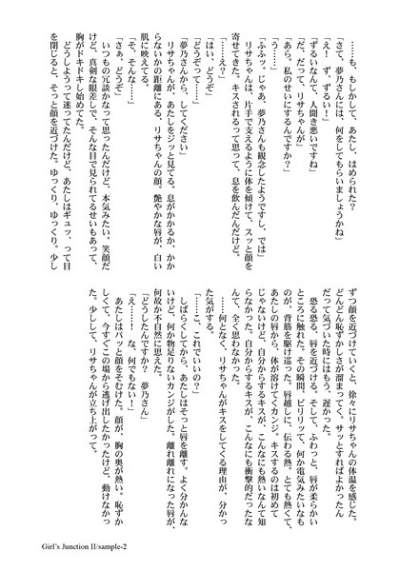 「……も、もしかして、あたし、はめられた？
「さて、夢乃さんには、何をしてもらいましょうかね」
「え！　ず、ずるい！」
「ずるいなんて、人聞き悪いですね」
「だ、だって、リサちゃんが」
「あら。私のせいにするんですか？」
「う……」
「ふふッ。じゃあ、夢乃さんも観念したようですし、では」
　リサちゃんは、片手で支えるように体を傾けて、スッと顔を
寄せてきた。キスされるって思って、息を飲んだんだけど、
「……え？」
「はい、どうぞ」
「どうぞって……」
「夢乃さんから、してください」
　リサちゃんが、あたしをジッと見てる。息がかかるか、かか
らないかの距離にある、リサちゃんの顔。艶やかな唇が、白い
肌に映えてる。
「そ、そんな……」
「さぁ、どうぞ」
　いつもの冗談かなって思ったんだけど、本気みたい。笑顔だ
けど、真剣な眼差しで、そんな目で見られてるせいもあって、
胸がドキドキし始めてた。
　どうしようって迷ってたんだけど、あたしはギュッ、って目
を閉じると、そっと顔を近づけた。ゆっくり、ゆっくり。少し
ずつ顔を近づけていくと、徐々にリサちゃんの体温を感じた。
どんどん恥ずかしさが溜まってく、サッとすればよかったん
だって気づいた時にはもう、遅かった。
　恐る恐る、唇を近づける。そして、ふわっと、唇が柔らかい
ところに触れた。その瞬間、ビリリッて、何か電気みたいなも
のが、背筋を駆け巡った。唇越しに、伝わる熱。とても熱くて、
あたしの唇から、体が溶けてくカンジ。キスするのは初めて
じゃないけど、自分からするキスが、こんなにも熱いなんて知
らなかった。自分からするキスが、こんなにも衝撃的だったな
んて、全く思わなかった。
　……何となく、リサちゃんがキスをしてくる理由が、分かっ
た気がする。
「……こ、これでいいの？」
　しばらくしてから、あたしはそっと唇を離す。よく分かんな
いけど、何か物足りないカンジがした。離れ離れになった唇が、
何故か不自然に思えた。
「どうしたんですか？　夢乃さん」
「え……！　な、何でもない！」
　あたしはパッと顔をそむけた。顔が、胸の奥が熱い。恥ずか
しくて、今すぐこの場から逃げ出したかったけど、動けなかっ
た。少しして、リサちゃんが立ち上がって、
Girl's Junction II/sample-2